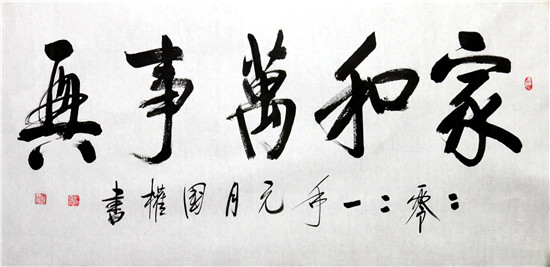 家和萬事興
二零二一年元月国權書